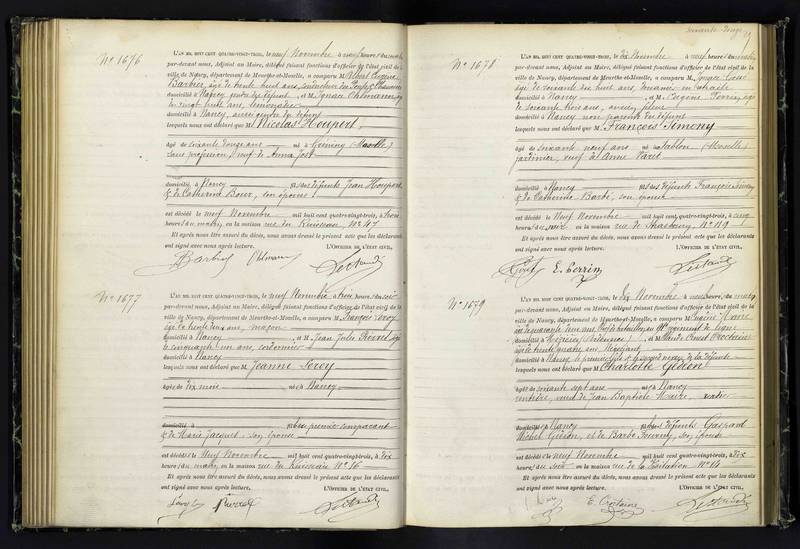 N° 1676
L'AN MIL HUIT CENT QUATRE-VINGT-TROIS, le neuf Novembre à neuf heures du matin
par-devant nous, Adjoint au Maire, délégué faisant fonctions d'officier de l'état civil de la
ville de Nancy, département de Meurthe-et-Moselle, a comparu M. Eugène
Barbier, âgé de trente huit ans, conducteur des Ponts & Chaussées
domicilié à Nancy, gendre du défunt, et M. Ignace Ohlmann, âgé
de vingt huit ans, limonadier
domicilié à Nancy, aussi gendre du défunt
lesquels nous ont déclaré que M. Nicolas Houpert,
âgé de soixante douze ans né à Guéning (Moselle)
sans profession, veuf de Anna Jost
domicilié à Nancy fils des défunts Jean Houpert
& de Catherine Bour, son épouse
est décédé le neuf Novembre mil huit cent quatre-vingt-trois, à trois
heures du matin, en la maison rue du Ruisseau, N° 47
Et après nous être assuré du décès, nous avons dressé le présent acte que les déclarants
ont signé avec nous après lecture. L'OFFICIER DE L'ÉTAT CIVIL,
Barbier Ohlmann
N° 1677
L'AN MIL HUIT CENT QUATRE-VINGT-TROIS, le neuf Novembre à trois heures du soir
par-devant nous, Adjoint au Maire, délégué faisant fonctions d'officier de l'état civil de la
ville de Nancy, département de Meurthe-et-Moselle, a comparu M. François Leroy
âgé de trente deux ans, maçon
domicilié à Nancy, et M. Jean Jules Pierrel, âgé
de cinquante un ans, cordonnier
domicilié à Nancy
lesquels nous ont déclaré que M. Jeanne Leroy
âgée de dix mois née à Nancy
domicilié à fille du premier comparant
& de Marie Jacquet, son épouse
est décédée le Neuf Novembre mil huit cent quatre-vingt-trois, à dix
heures du matin, en la maison rue du Ruisseau N° 16
Et après nous être assuré du décès, nous avons dressé le présent acte que les déclarants
ont signé avec nous après lecture. L'OFFICIER DE L'ÉTAT CIVIL,
Leroy Pierrel
soixante douze
N° 1678
L'AN MIL HUIT CENT QUATRE-VINGT-TROIS, le dix Novembre à neuf heures du matin
par-devant nous, Adjoint au Maire, délégué faisant fonctions d'officier de l'état civil de la
ville de Nancy, département de Meurthe-et-Moselle, a comparu M. Ignace
âgé de soixante dix huit ans, en retraite
domicilié à Nancy et M. Eugène Perrin, âgé
de soixante trois ans,
domicilié à Nancy non parents du défunt
lesquels nous ont déclaré que M. François Simony
âgé de soixante neuf ans né à Sablon (Moselle)
jardinier, veuf de Anne Paret
domicilié à Nancy fils des défunts François Simony
& de Catherine Barbé, son épouse
est décédé le Neuf Novembre mil huit cent quatre-vingt-trois, à cinq
heures du soir, en la maison rue de Strasbourg, N° 119
Et après nous être assuré du décès, nous avons dressé le présent acte que les déclarants
ont signé avec nous après lecture. L'OFFICIER DE L'ÉTAT CIVIL,
E. Perrin
N° 1679
L'AN MIL HUIT CENT QUATRE-VINGT-TROIS, le dix Novembre à neuf heures du matin
par-devant nous, Adjoint au Maire, délégué faisant fonctions d'officier de l'état civil de la
ville de Nancy, département de Meurthe-et-Moselle, a comparu M. Eugène
âgé de quarante deux ans, Chef de bataillon au régiment de ligne
domicilié à Mézières (Ardennes), et M. Claude Ernest Crovitaine
âgé de trente quatre ans, Négociant
domicilié à Nancy, le premier fils & le second neveu de la défunte
lesquels nous ont déclaré que M. Charlotte Gédéon
âgée de soixante sept ans née à Nancy
rentière, veuve de Jean Baptiste
domiciliée à Nancy fille des défunts Gaspard
Michel Gédéon, et de Barbe Fourny, son épouse
est décédée le neuf Novembre mil huit cent quatre-vingt-trois, à dix
heures du soir en la maison rue de la Visitation N° 14
Et après nous être assuré du décès, nous avons dressé le présent acte que les déclarants
ont signé avec nous après lecture. L'OFFICIER DE L'ÉTAT CIVIL,